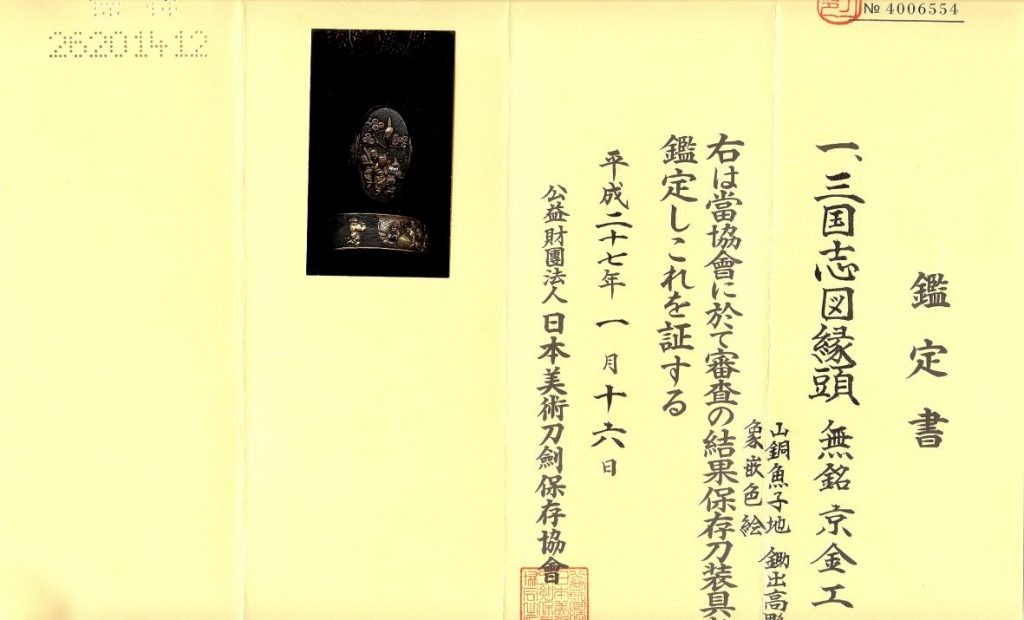 № 4006554
鑑定書
一、三国志図縁頭 無銘 京金工
山銅魚子地 鋤出高彫
象嵌色絵
右は當協會に於て審査の結果保存刀装具
鑑定しこれを証する
平成二十七年一月十六日
公益財團法人 日本美術刀劍保存協會
26201412